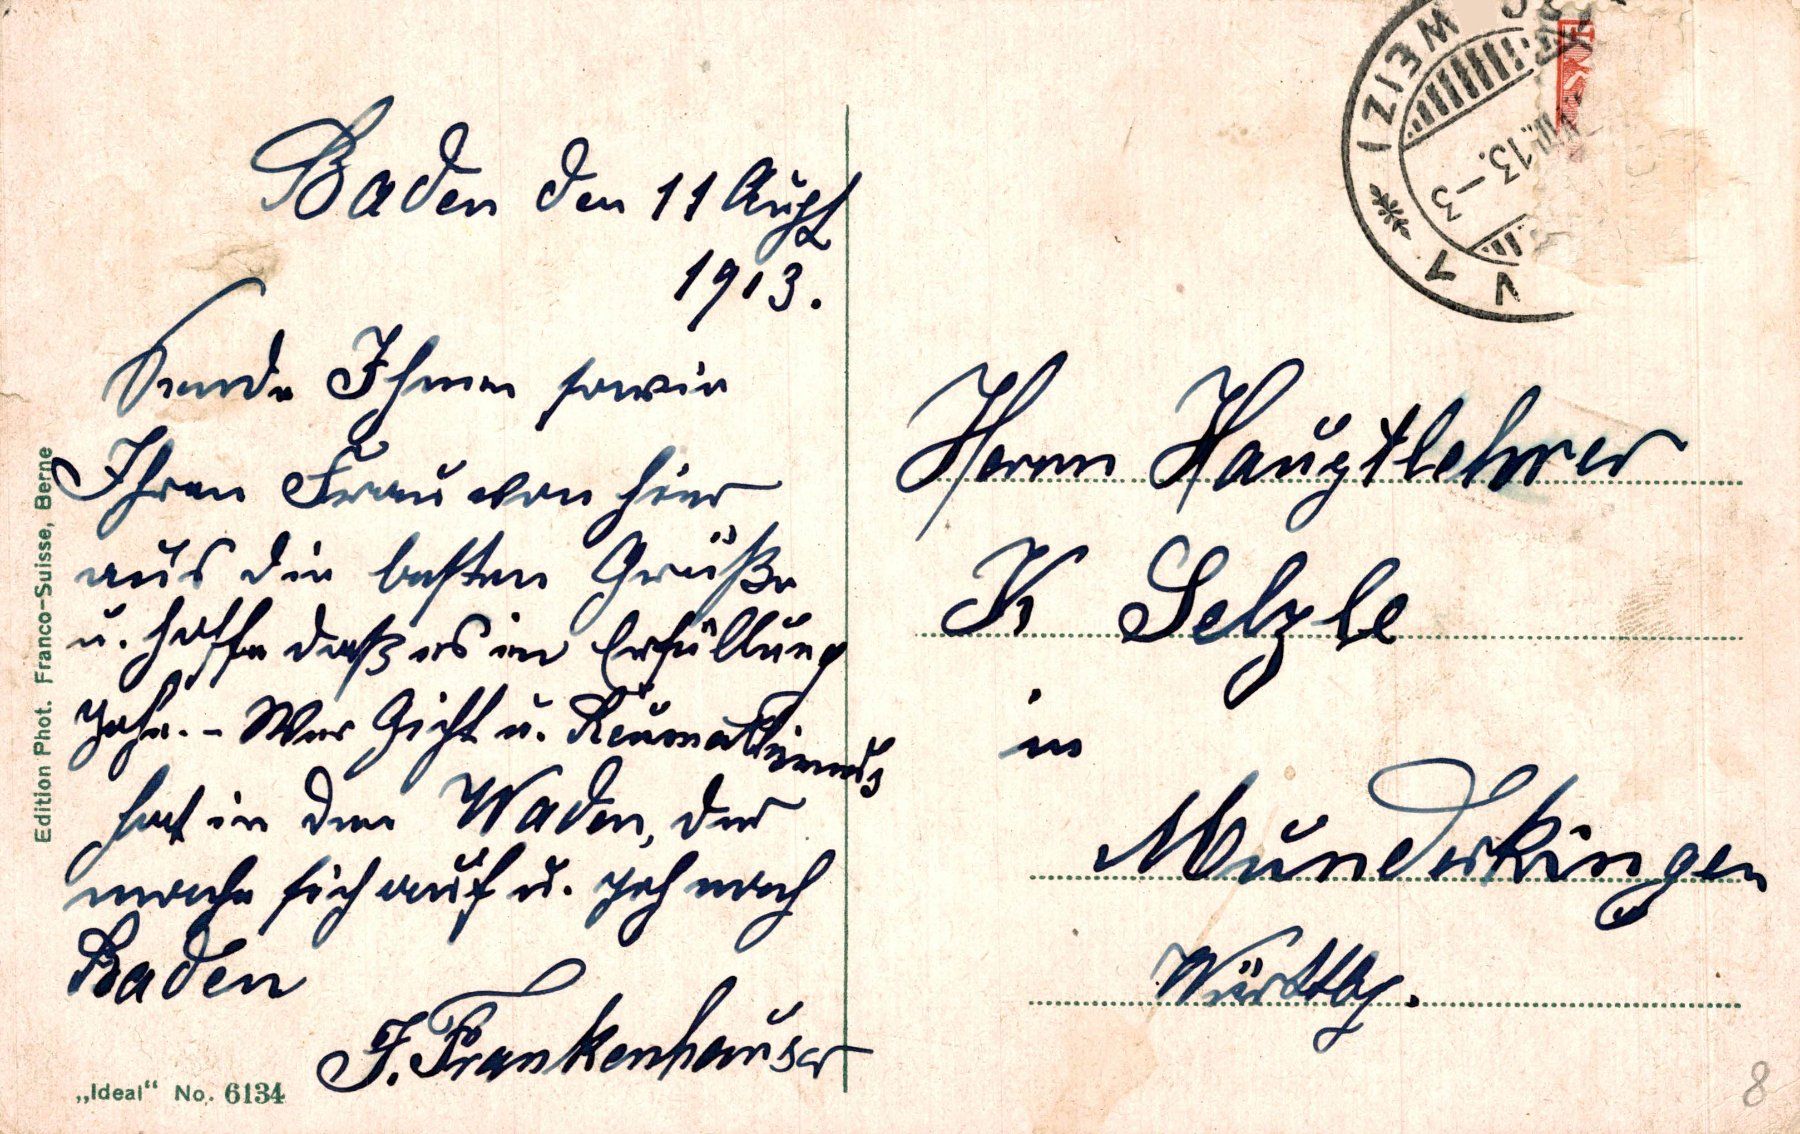 Baden den 11 Augst
1913.
Sende Ihnen sowie
Ihren Frau von hier
aus die besten Grüße
u. hoffe daß es in Erfüllung
gehe. - Wer Gicht u. Reumattismus
hat in den Waden, der
mache sich auf u. geh nach
Baden
F. Frankenhauser
Herrn Hauptlehrer
K Selzle
in
Munderkingen
Württbg.
WEIZ)
VII.13.–3
V1
Edition Phot. Franco-Suisse, Berne
„Ideal“ No. 6134
8